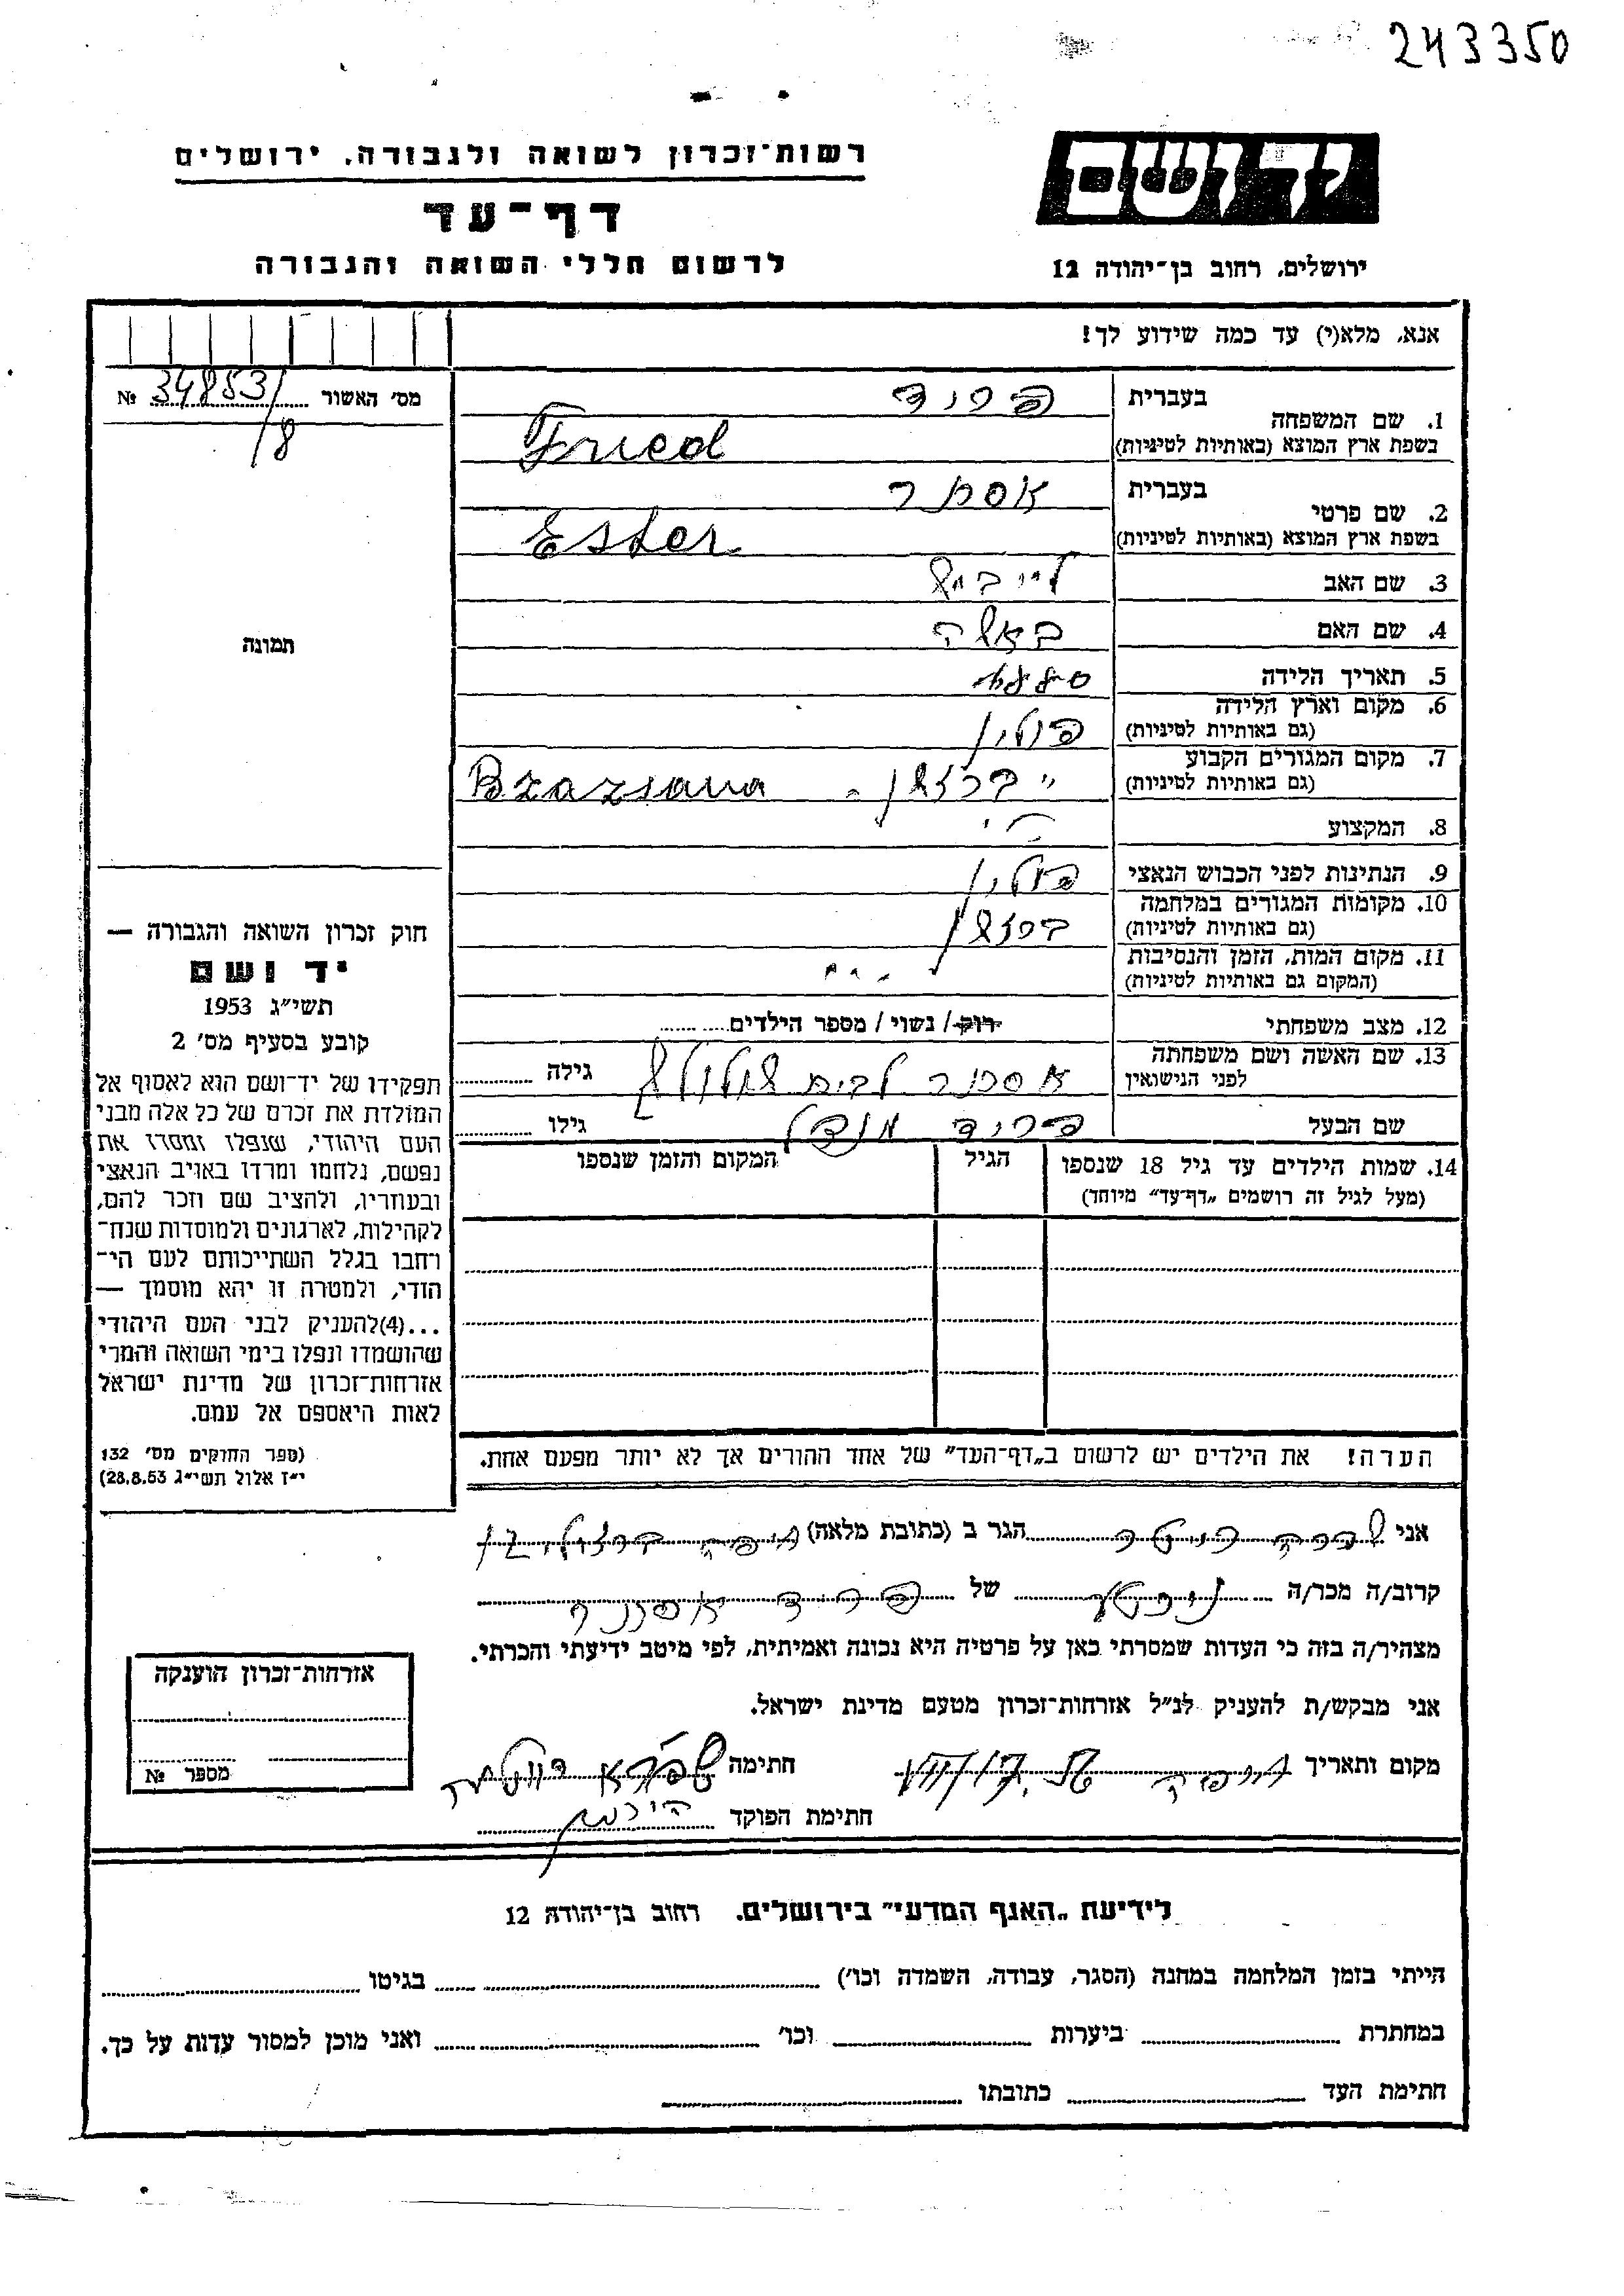 243350
רשות־זכרון לשואה ולגבורה, ירושלים
דף־עד
לרשום חללי השואה והגבורה
יד ושם
ירושלים, רחוב בן־יהודה 12
אנא, מלא(י) עד כמה שידוע לך!
מס' האשור № 348531/8
תמונה
1. שם המשפחה
בעברית פריד
בשפת ארץ המוצא (באותיות לטיניות) Fried
2. שם פרטי
בעברית אסתר
בשפת ארץ המוצא (באותיות לטיניות) Ester
3. שם האב לייביש
4. שם האם
5. תאריך הלידה
6. מקום וארץ הלידה (גם באותיות לטיניות) פולין
7. מקום המגורים הקבוע (גם באותיות לטיניות) " ברזזן - Bzazsana
8. המקצוע
9. הנתינות לפני הכבוש הנאצי פולין
10. מקומות המגורים במלחמה (גם באותיות לטיניות)
11. מקום המות, הזמן והנסיבות (המקום גם באותיות לטיניות)
12. מצב משפחתי רוק / נשוי / מספר הילדים
13. שם האשה ושם משפחתה לפני הנישואין אסתר לבית גילה
שם הבעל פריד מנדל גילו
14. שמות הילדים עד גיל 18 שנספו (מעל לגיל זה רושמים „דף־עד" מיוחד)
הגיל
המקום והזמן שנספו
חוק זכרון השואה והגבורה —
יד ושם
תשי"ג 1953
קובע בסעיף מס' 2
תפקידו של יד־ושם הוא לאסוף אל
המולדת את זכרם של כל אלה מבני
העם היהודי, שנפלו ומסרו את
נפשם, נלחמו ומרדו באויב הנאצי
ובעוזריו, ולהציב שם וזכר להם,
לקהילות, לארגונים ולמוסדות שנח־
רחבו בגלל השתייכותם לעם הי־
הודי, ולמטרה זו יהא מוסמך —
...(4)להעניק לבני העם היהודי
שהושמדו ונפלו בימי השואה והמרי
אזרחות־זכרון של מדינת ישראל
לאות היאספם אל עמם.
(ספר החוקים מס' 132
י"ז אלול תשי"ג 28.8.53)
הערה! את הילדים יש לרשום ב„דף־העד" של אחד ההורים אך לא יותר מפעם אחת.
אני הגר ב (כתובת מלאה) חיפה
קרוב/ה מכר/ה של פריד אסתר
מצהיר/ה בזה כי העדות שמסרתי כאן על פרטיה היא נכונה ואמיתית, לפי מיטב ידיעתי והכרתי.
אני מבקש/ת להעניק לנ"ל אזרחות־זכרון מטעם מדינת ישראל.
מקום ותאריך חיפה חתימה
חתימת הפוקד
אזרחות־זכרון הוענקה
מספר №
לידיעת „האגף המדעי" בירושלים. רחוב בן־יהודה 12
הייתי בזמן המלחמה במחנה (הסגר, עבודה, השמדה וכו') בגיטו
במחתרת ביערות וכו' ואני מוכן למסור עדות על כך.
חתימת העד כתובתו